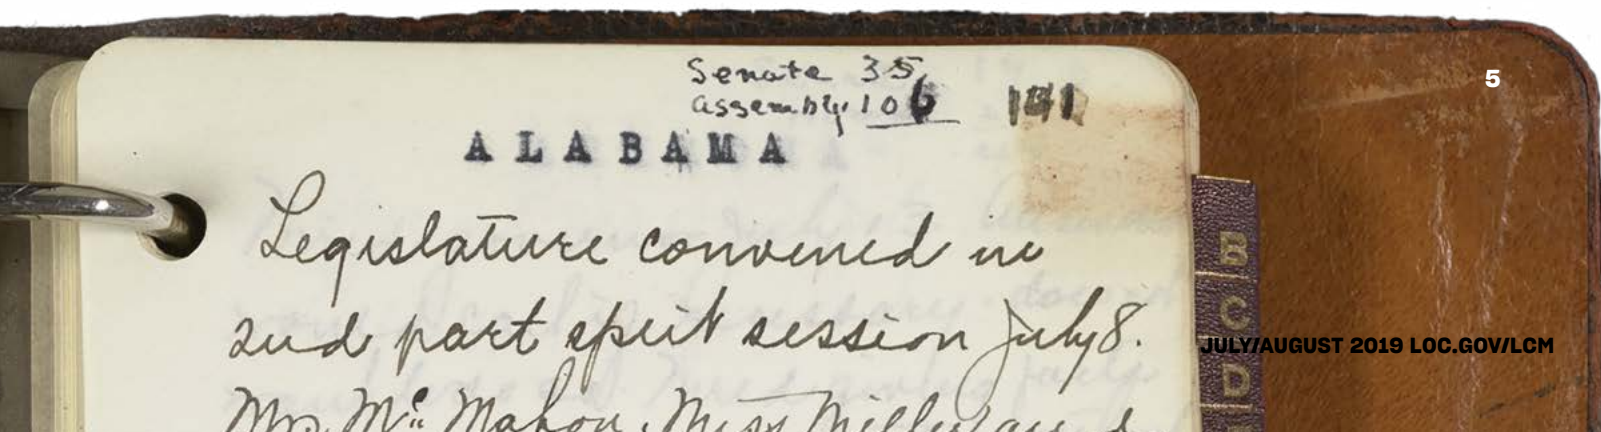 Senate 35
Assembly 106 141
ALABAMA
Legislature convened in
2nd part split session July 8.
Mrs. Mc Mahon, Miss Milley and
B
C
D
5
JULY/AUGUST 2019 LOC.GOV/LCM